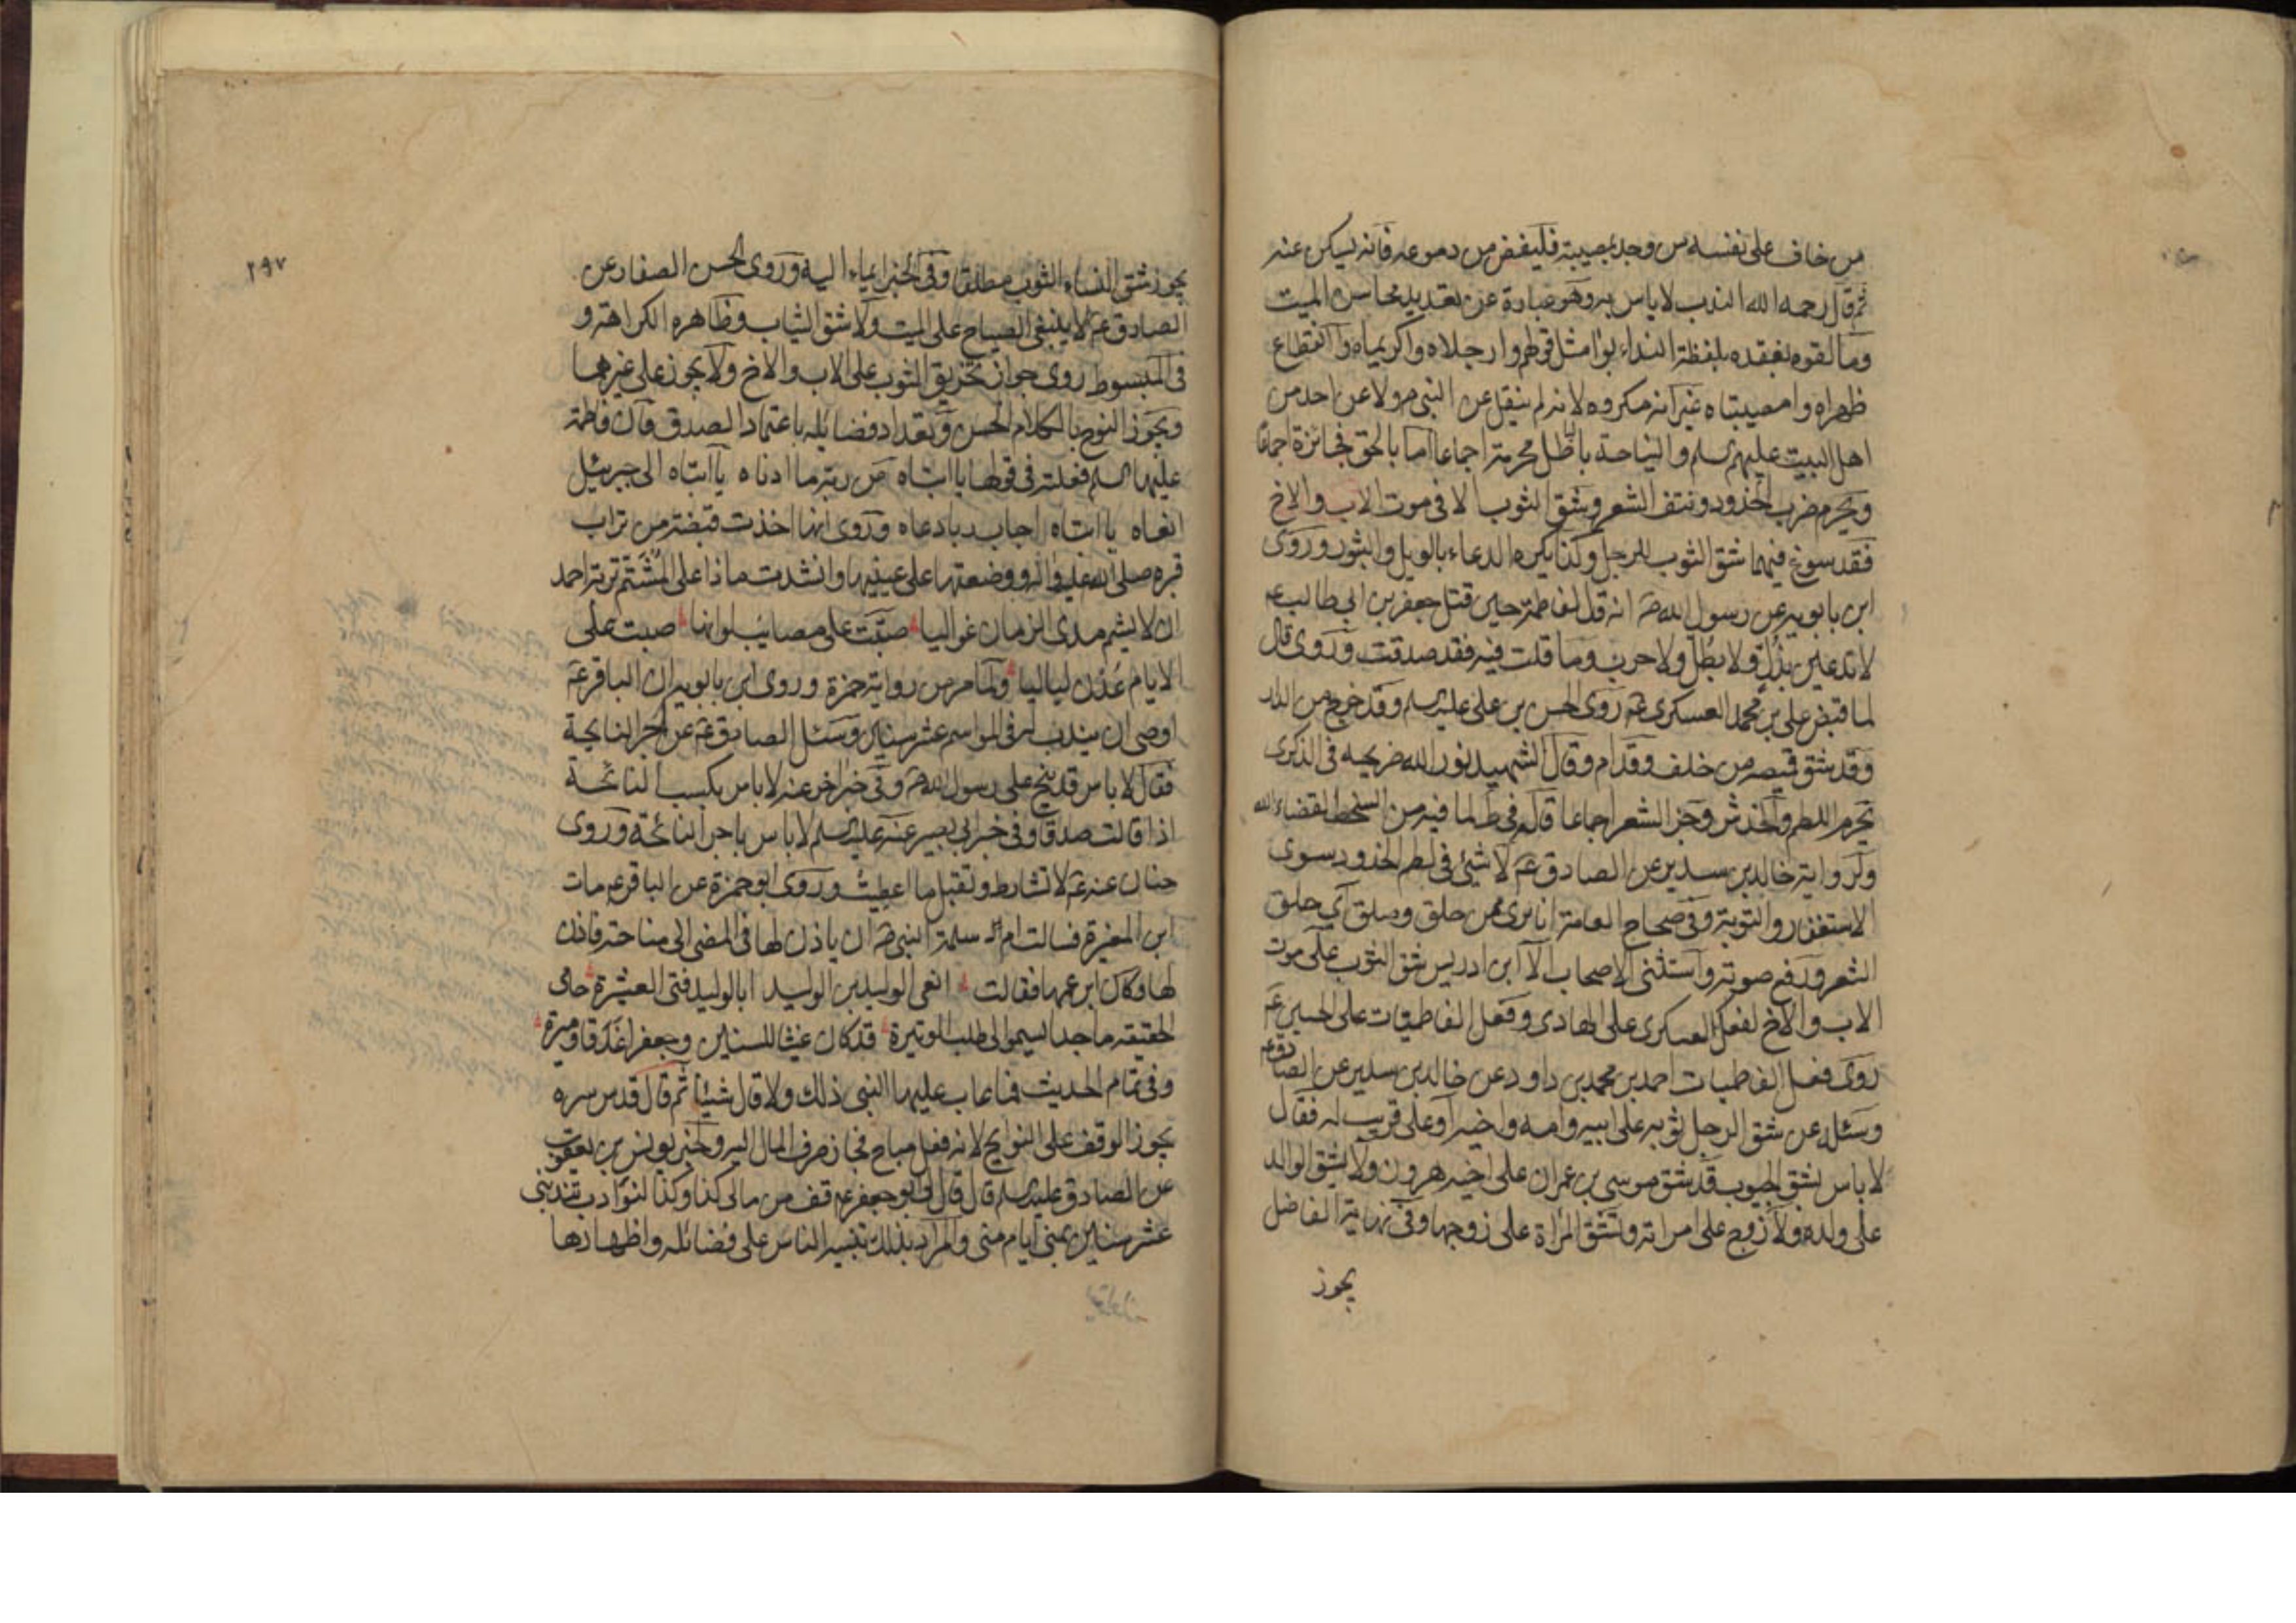 من خاف على نفسه من وجد بمصيبة فليفض من دموعه فانه يسكن عنه
ثم قال رحمه الله الندب لا باس به وهو عبارة عن تعديد محاسن الميت
وما لقوه بفقده بلفظة النداء بوا مثل قولهم وارجلاه واكريماه وا انقطاع
ظهراه وامصيبتاه غير انه مكروه لانه لم ينقل عن النبي ص ولا عن احد من
اهل البيت عليهم السلم والنياحة باطل محرمة اجماعا اما بالحق فجائزة اجماعا
ويحرم ضرب الخدود ونتف الشعر وشق الثوب الا في موت الاب والاخ
فقد سوغ فيهما شق الثوب للرجل وكذا يكره الدعاء بالويل والثبور وروى
ابن بابويه عن رسول الله ص انه قال لفاطمة حين قتل جعفر بن ابي طالب ع
لا تدعين بذل ولا بثكل ولا حرب وما قلت فيه فقد صدقت وروى قال
لما قبض علي بن محمد العسكري ع روى الحسن بن علي عليه السلم وقد خرج من الدار
وقد شق قميصه من خلف وقدام وقال الشهيد نور الله ضريحه في الذكرى
تحرم اللطم والخدش وجز الشعر اجماعا قاله في ط لما فيه من السخط لقضاء الله
ولرواية خالد بن سدير عن الصادق ع لا شيئ في لطم الخدود سوى
الاستغفار والتوبة وفي صحاح العامة انا بري ممن حلق وصلق اي حلق
الشعر ورفع صوته واستثنى الاصحاب الا ابن ادريس شق الثوب على موت
الاب والاخ لفعل العسكري على الهادي وفعل الفاطميات على الحسين ع
روى فعل الفاطميات احمد بن محمد بن داود عن خالد بن سدير عن الصادق ع
وسئله عن شق الرجل ثوبه على ابيه وامه واخيه او على قريب له فقال
لا باس بشق الجيوب قد شق موسى بن عمران على اخيه هرون ولا يشق الوالد
على ولده ولا زوج على امراته وتشق المراة على زوجها وفي نهاية الفاضل
يجوز
٢٩٧
يجوز شق النساء الثوب مطلقا وفي الخبر ايماء اليه وروى الحسن الصفار عن
الصادق ع لا ينبغي الصياح على الميت ولا شق الثياب وظاهره الكراهة و
في المبسوط روى جواز تخريق الثوب على الاب والاخ ولا يجوز على غيرهما
ويجوز النوح بالكلام الحسن وتعداد فضائله باعتماد الصدق فان فاطمة
عليها السلم فعلته في قولها يا ابتاه من ربه ما ادناه يا ابتاه الى جبرئيل
انعاه يا ابتاه اجاب ربا دعاه وروى انها اخذت قبضة من تراب
قبره صلى الله عليه واله ووضعتها على عينيها وانشدت ماذا على المشتم تربة احمد
ان لا يشم مدى الزمان غواليا صبت على مصائب لو انها صبت على
الايام عدن لياليا ولما مر من رواية حمزة وروى ابن بابويه ان الباقر ع
اوصى ان يندب له في المواسم عشر سنين وسئل الصادق ع عن اجر النايحة
فقال لا باس قد نيح على رسول الله ص وفي خبر اخر عنه لا باس بكسب النائحة
اذا قالت صدقا وفي خبر ابي بصير عنه عليه السلم لا باس باجر النائحة وروى
حنان عنه ع لا تشارط وتقبل ما اعطيت وروى ابو حمزة عن الباقر ع مات
ابن المغيرة فسالت ام سلمة النبي ص ان ياذن لها في المضي الى مناحته فاذن
لها وكان ابن عمها فقالت انعى الوليد بن الوليد ابا الوليد فتى العشيرة حامى
الحقيقه ماجدا يسموالى طلب الوتيرة قد كان غيثا للسنين وجعفرا غدقا وميرة
وفي تمام الحديث فما عاب عليها النبي ذلك ولا قال شيئا ثم قال قدس سره
يجوز الوقف على النوايح لانه فعل مباح فجاز صرف المال اليه ولخبر يونس بن يعقوب
عن الصادق عليه السلم قال قال لي ابو جعفر ع قف من مالي كذا وكذا لنوادب تندبني
عشر سنين بمنى ايام منى والمراد بذلك تنبيه الناس على فضائله واظهارها